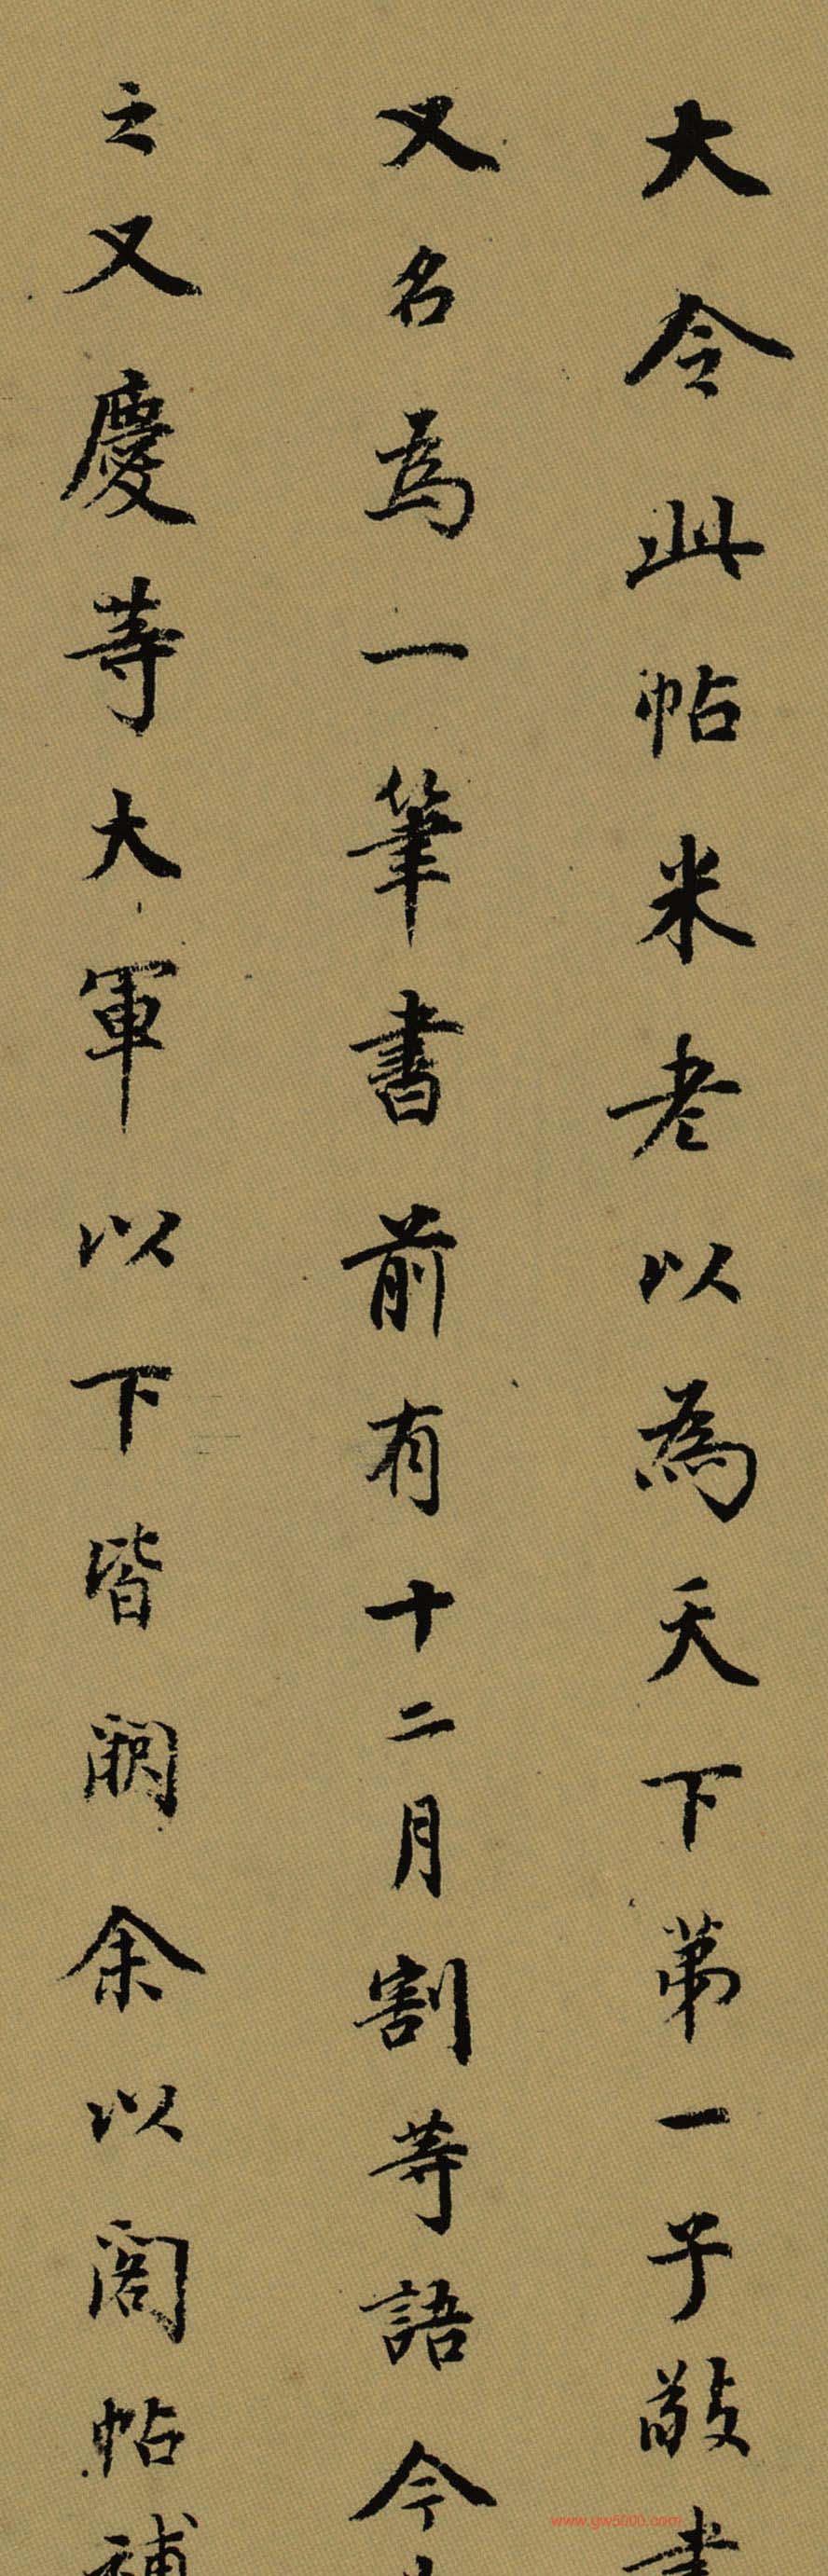 大令此帖米老以為天下第一子敬書
又名為一筆書前有十二月割等語今
之又慶等大軍以下皆闕余以閣帖補
www.gw5000.com